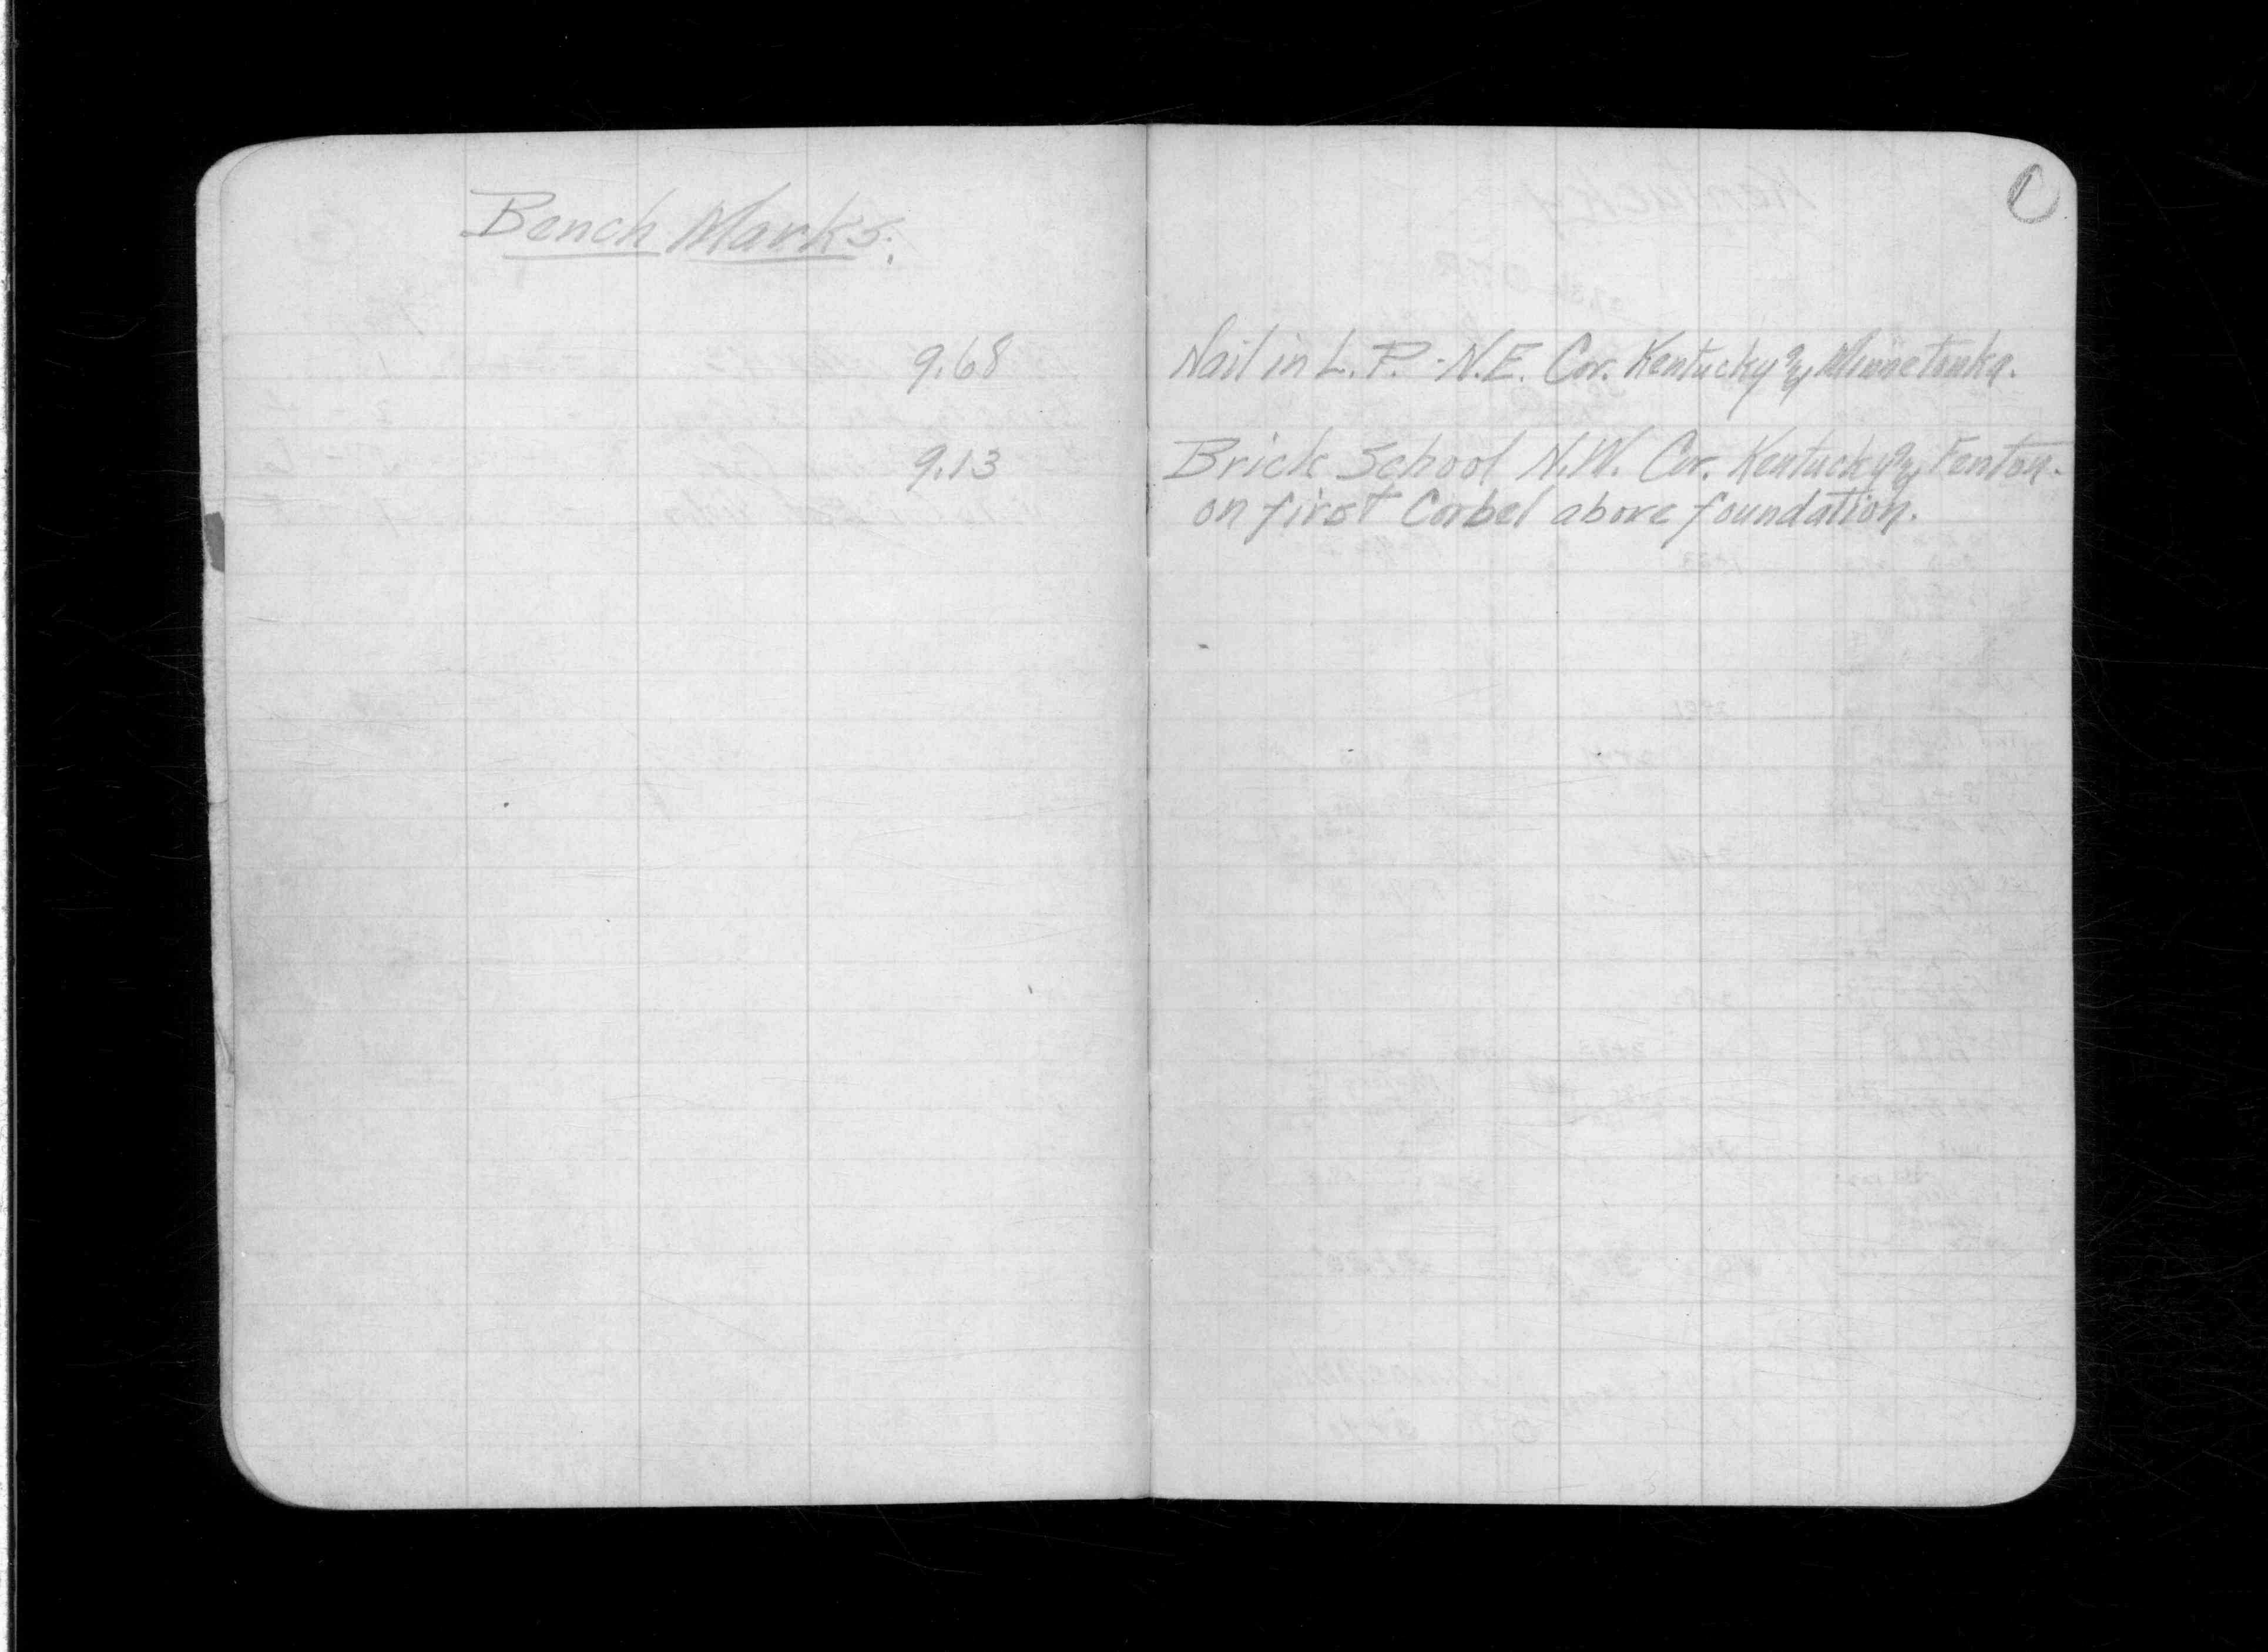 Bench Marks.
1
9.68 Nail in L.P. - N.E. Cor. Kentucky & Minnetonka.
9.13 Brick School N.W. Cor. Kentucky & Fenton.
on first Corbel above foundation.